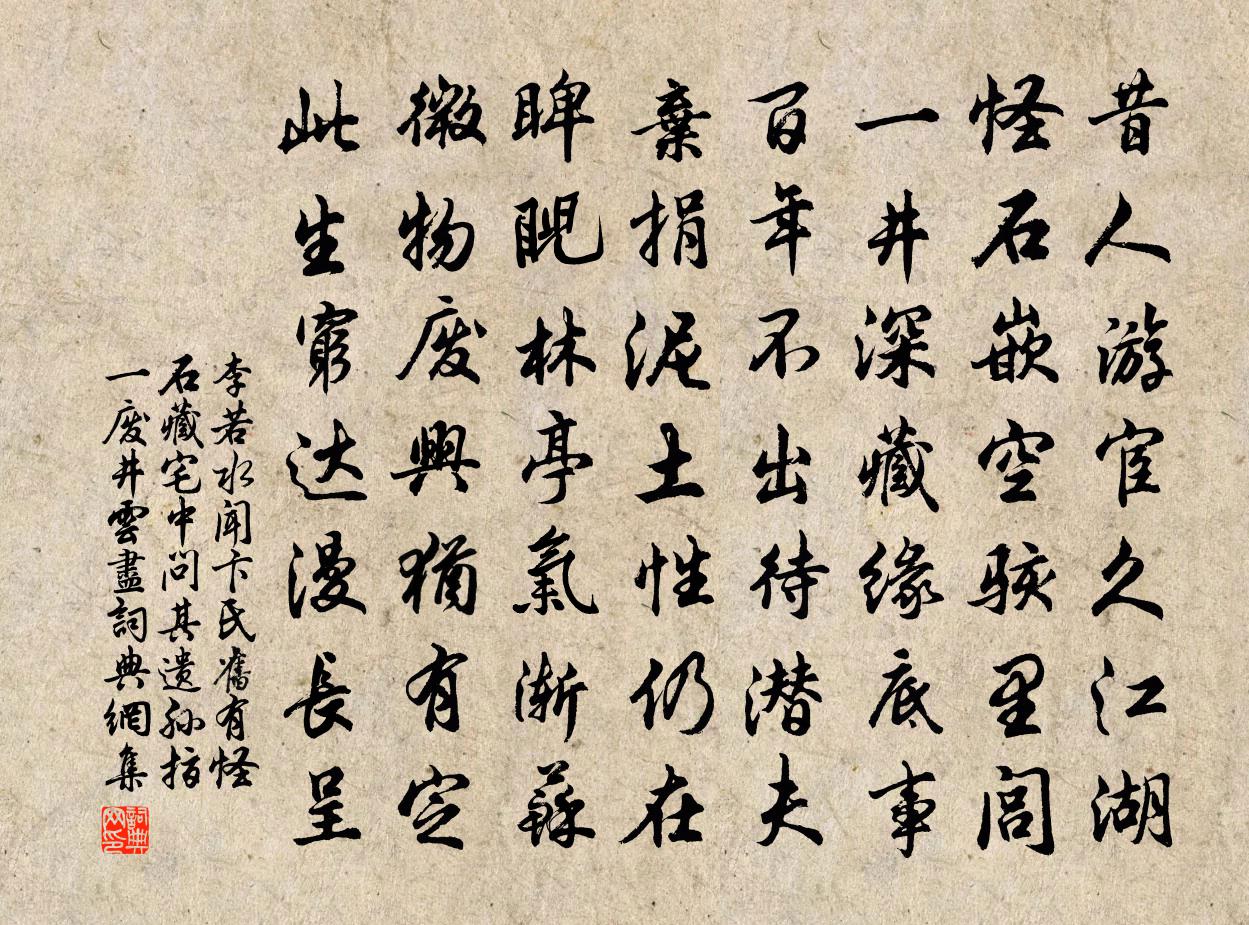 昔人游宦久江湖
怪石嵌空骇里闾
一井深藏缘底事
百年不出待潜夫
棄捐泥土性仍在
睥睨林亭氣渐蘇
微物废興猶有定
此生窮达漫長呈
李若水闻卞氏舊有怪
石藏宅中问其遗孙指
一废井雲盡詞典網集
詞典
网印